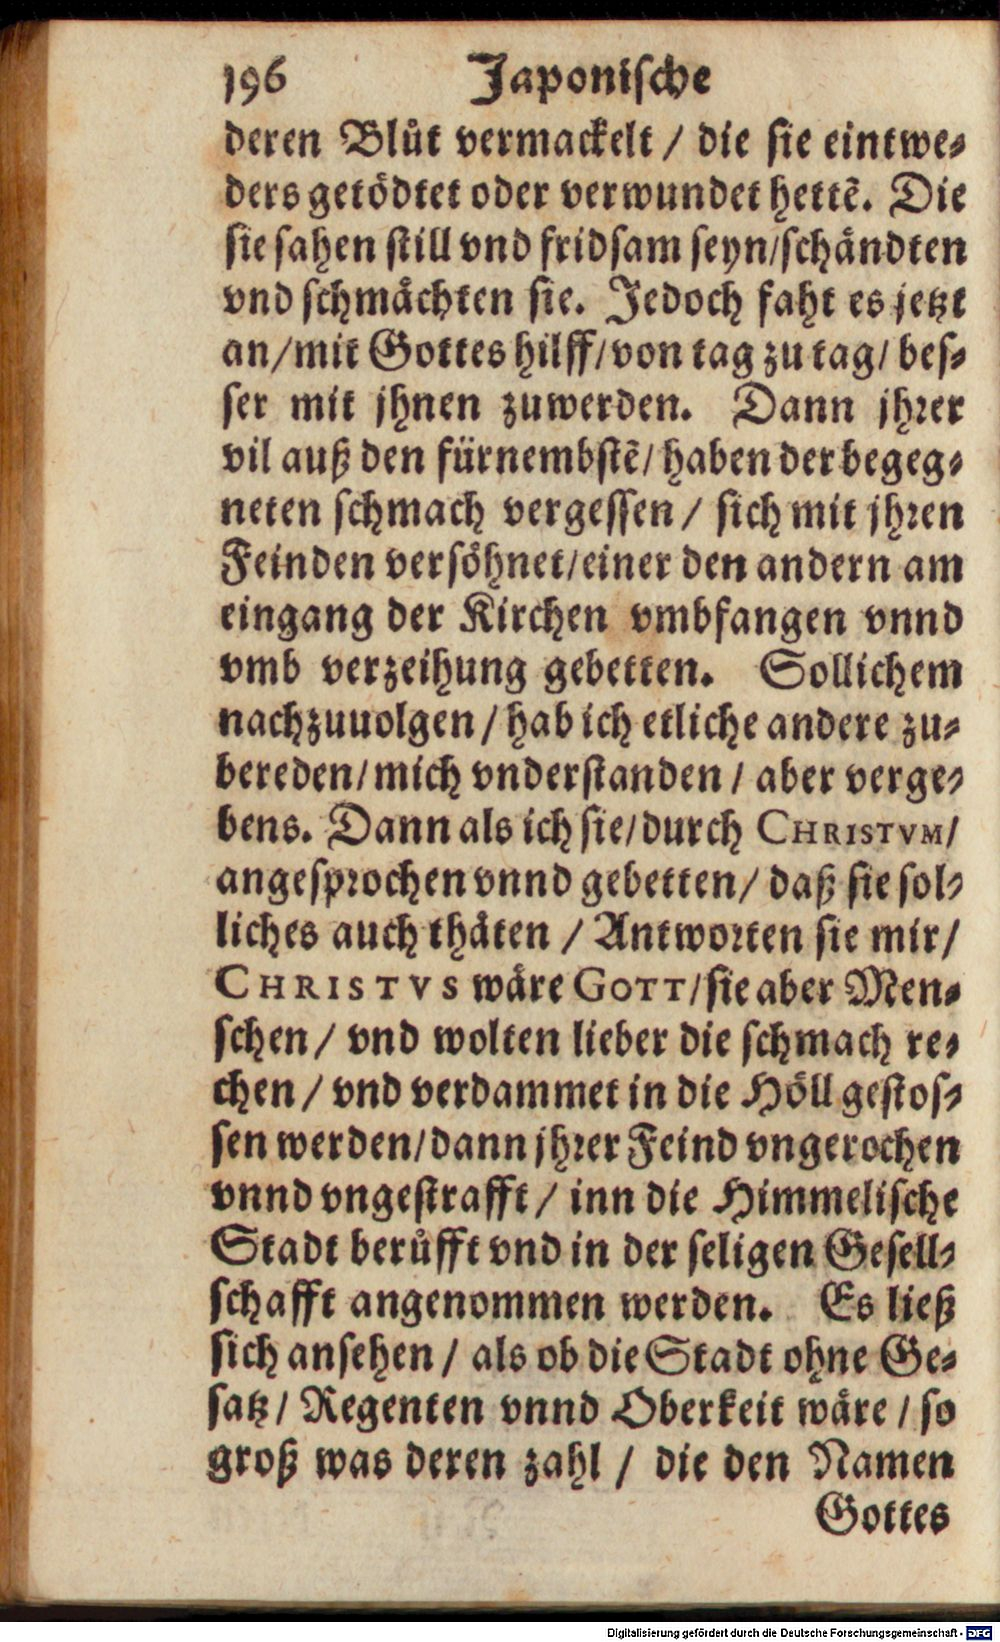 196 Japonische
deren Blůt vermackelt / die sie eintwe-
ders getödtet oder verwundet hettẽ. Die
sie sahen still vnd fridsam seyn/schändten
vnd schmächten sie. Jedoch faht es jetzt
an/mit Gottes hilff/von tag zu tag/ bes-
ser mit jhnen zuwerden. Dann jhrer
vil auß den fürnembstẽ/ haben der begeg-
neten schmach vergessen / sich mit jhren
Feinden versöhnet/einer den andern am
eingang der Kirchen vmbfangen vnnd
vmb verzeihung gebetten. Sollichem
nachzuuolgen / hab ich etliche andere zu-
bereden/mich vnderstanden / aber verge-
bens. Dann als ich sie/durch CHRISTVM/
angesprochen vnnd gebetten/ daß sie sol-
liches auch thäten / Antworten sie mir/
CHRISTVS wäre GOTT/sie aber Men-
schen / vnd wolten lieber die schmach re-
chen / vnd verdammet in die Höll gestos-
sen werden/dann jhrer Feind vngerochen
vnnd vngestrafft / inn die Himmelische
Stadt berůfft vnd in der seligen Gesell-
schafft angenommen werden. Es ließ
sich ansehen / als ob die Stadt ohne Ge-
satz/ Regenten vnnd Oberkeit wäre / so
groß was deren zahl / die den Namen
Gottes
Digitalisierung gefördert durch die Deutsche Forschungsgemeinschaft - DFG